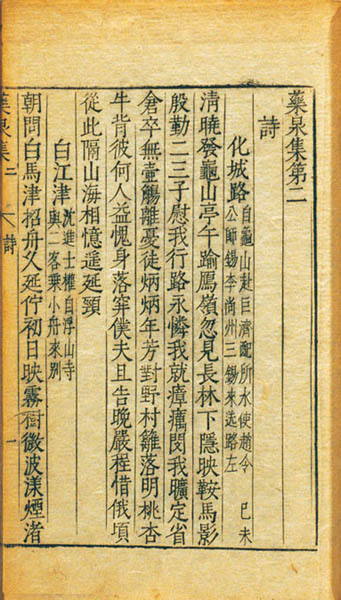 藥泉集第二
詩
化城路 自龜山赴巨濟配所水使趙今 己未
公師錫李尚州三錫來送路左
清曉發龜山亭午踰鷹嶺忽見長林下隱映鞍馬影
殷勤二三子慰我行路永憐我就瘴癘閔我曠定省
倉卒無壺觴離憂徒炳炳年芳對野村籬落明桃杏
牛背彼何人益愧身落穽僕夫且告晚嚴程惜俄頃
從此隔山海相憶遥延頸
白江津 沈進士權自浮山寺
與二客乗小舟來别
朝問白馬津招舟久延佇初日映霧樹微波漾煙渚
藥泉集 二 詩 一